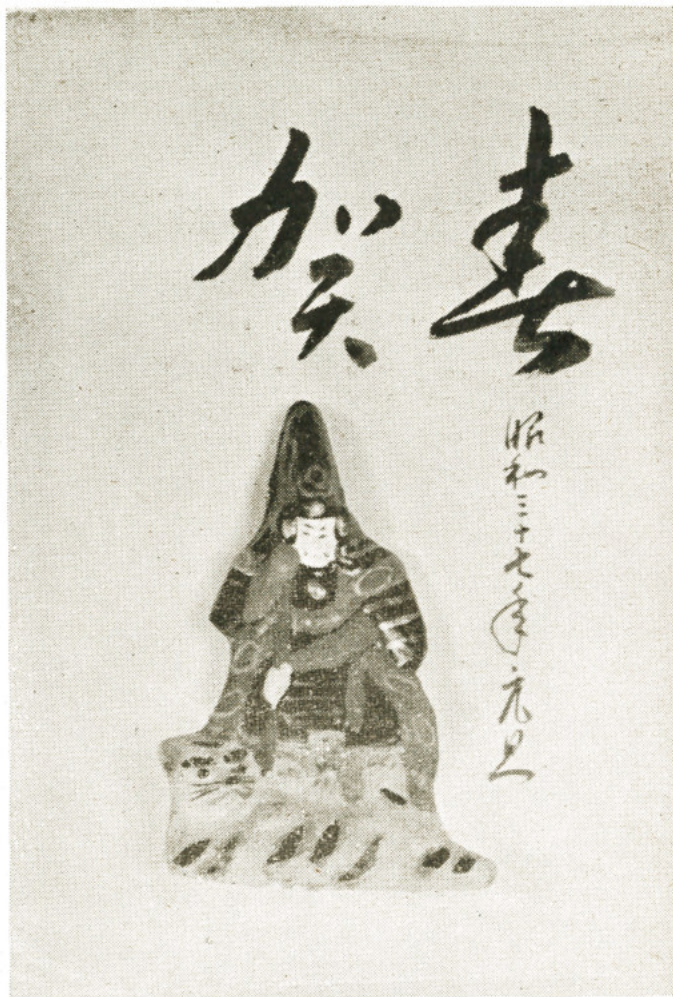 賀春
昭和三十七年元旦